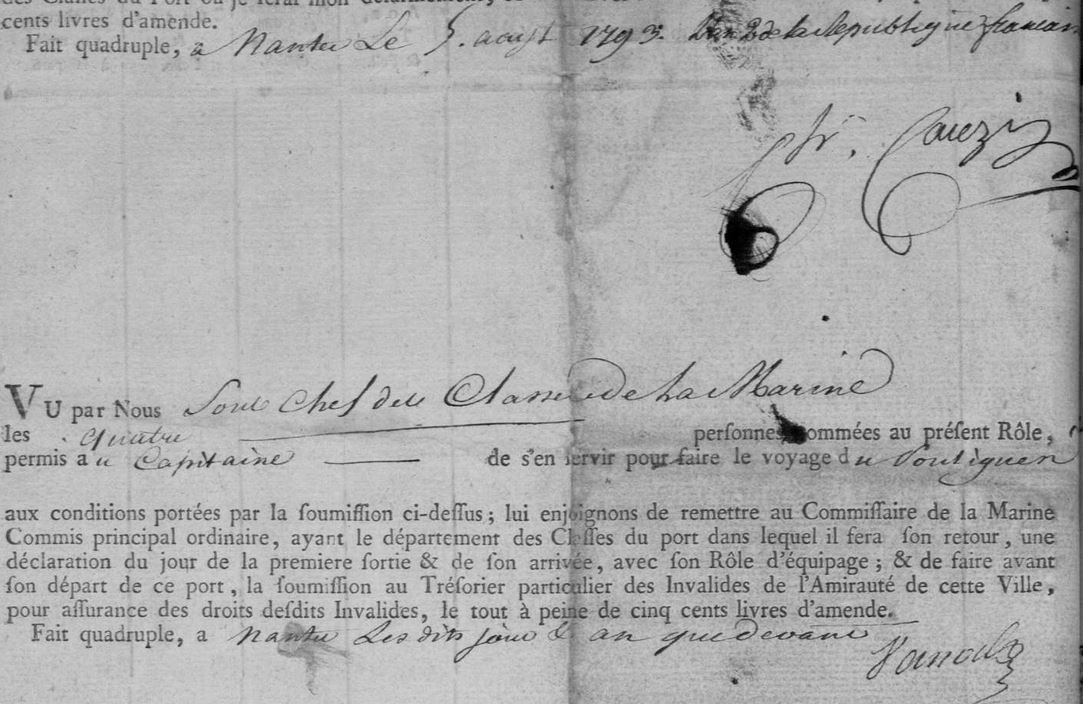 des Classes du Port où je ferai mon désarmement,
cents livres d'amende.
Fait quadruple, a Nantes Le 5. aoust 1793. L'an 2 de la Republique francais
fr. Cauzi
VU par Nous Sous Chef des Classes de La Marine
les quatre personnes nommées au préſent Rôle,
permis au Capitaine de s'en ſervir pour faire le voyage du Pouliguen
aux conditions portées par la ſoumiſſion ci-deſſus ; lui enjoignons de remettre au Commiſſaire de la Marine
Commis principal ordinaire, ayant le département des Claſſes du port dans lequel il fera ſon retour, une
déclaration du jour de la premiere ſortie & de ſon arrivée, avec ſon Rôle d'équipage ; & de faire avant
ſon départ de ce port, la ſoumiſſion au Tréſorier particulier des Invalides de l'Amirauté de cette Ville,
pour aſſurance des droits deſdits Invalides, le tout à peine de cinq cents livres d'amende.
Fait quadruple, a Nantes Les dits jour & an que devant